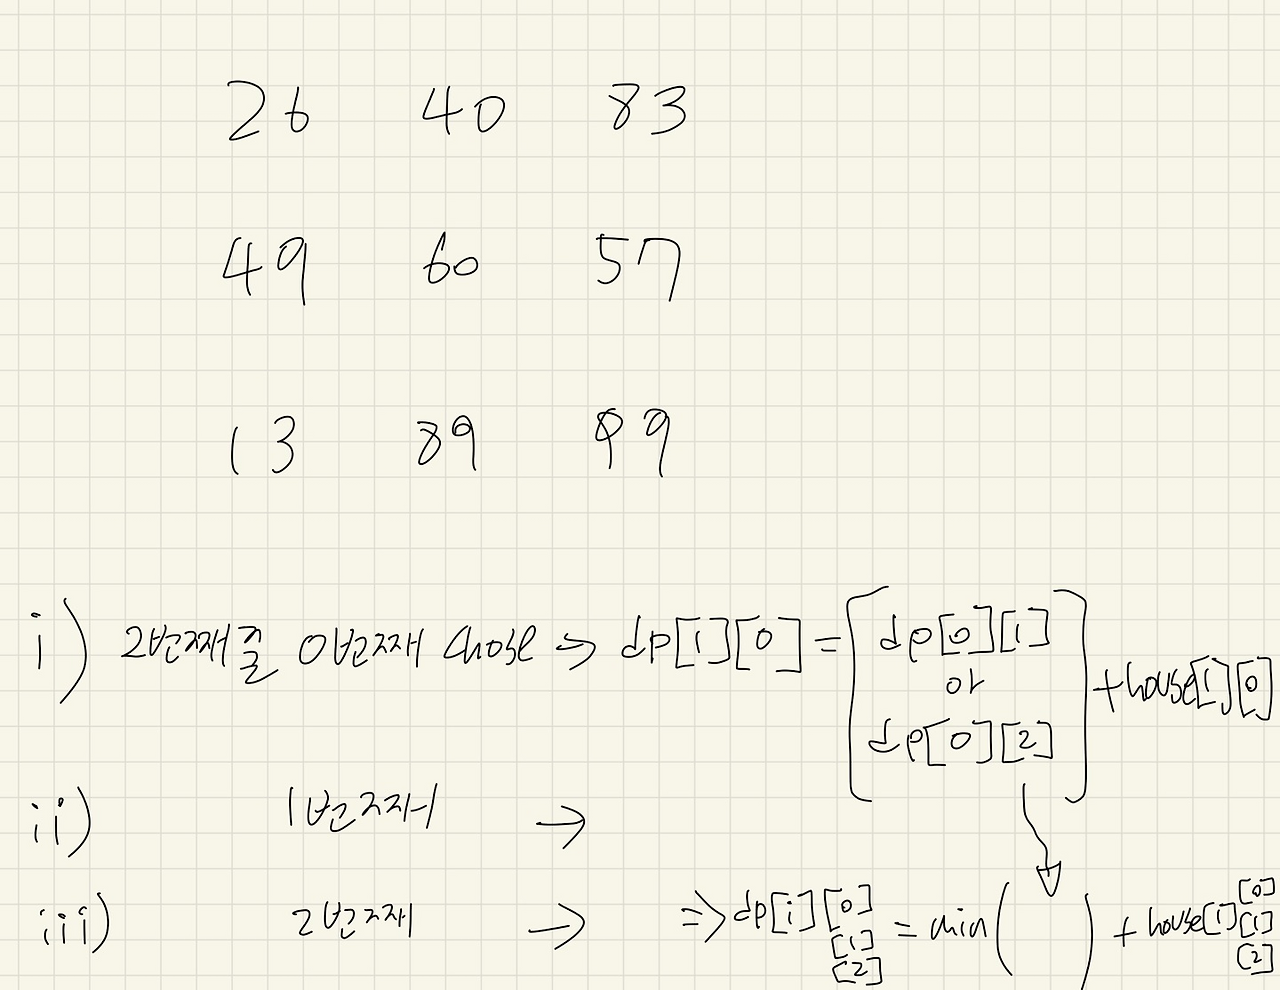 26 40 83
49 60 57
13 89 99
i) 2번째줄 0번째 chose → dp[1][0] = [dp[0][1] or dp[0][2]] + house[1][0]
ii) 1번째 →
iii) 2번째 → ⇒ dp[i][0] [1] [2] = min( ) + house[i][0] [1] [2]